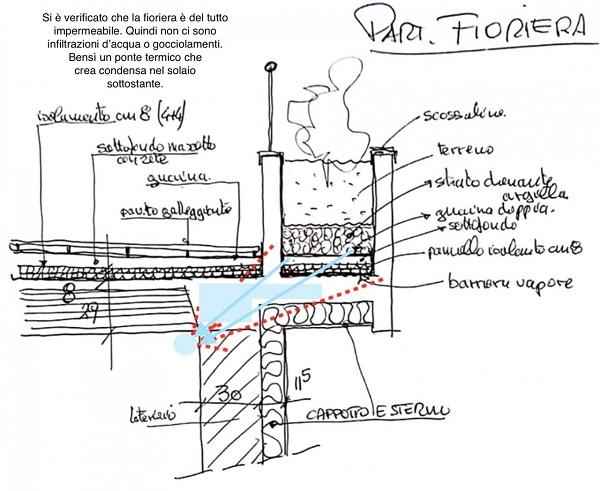 Si è verificato che la fioriera è del tutto
impermeabile. Quindi non ci sono
infiltrazioni d'acqua o gocciolamenti.
Bensì un ponte termico che
crea condensa nel solaio
sottostante.
PART. FIORIERA
isolamento cm 8 (4+4)
sottofondo massetto
con rete
guaina
scossalina
terreno
strato drenante
argilla
guaina doppia
sottofondo
pannello isolante cm 8
barriera vapore
8
29
30
11⁵
laterizio
CAPPOTTO ESTERNO